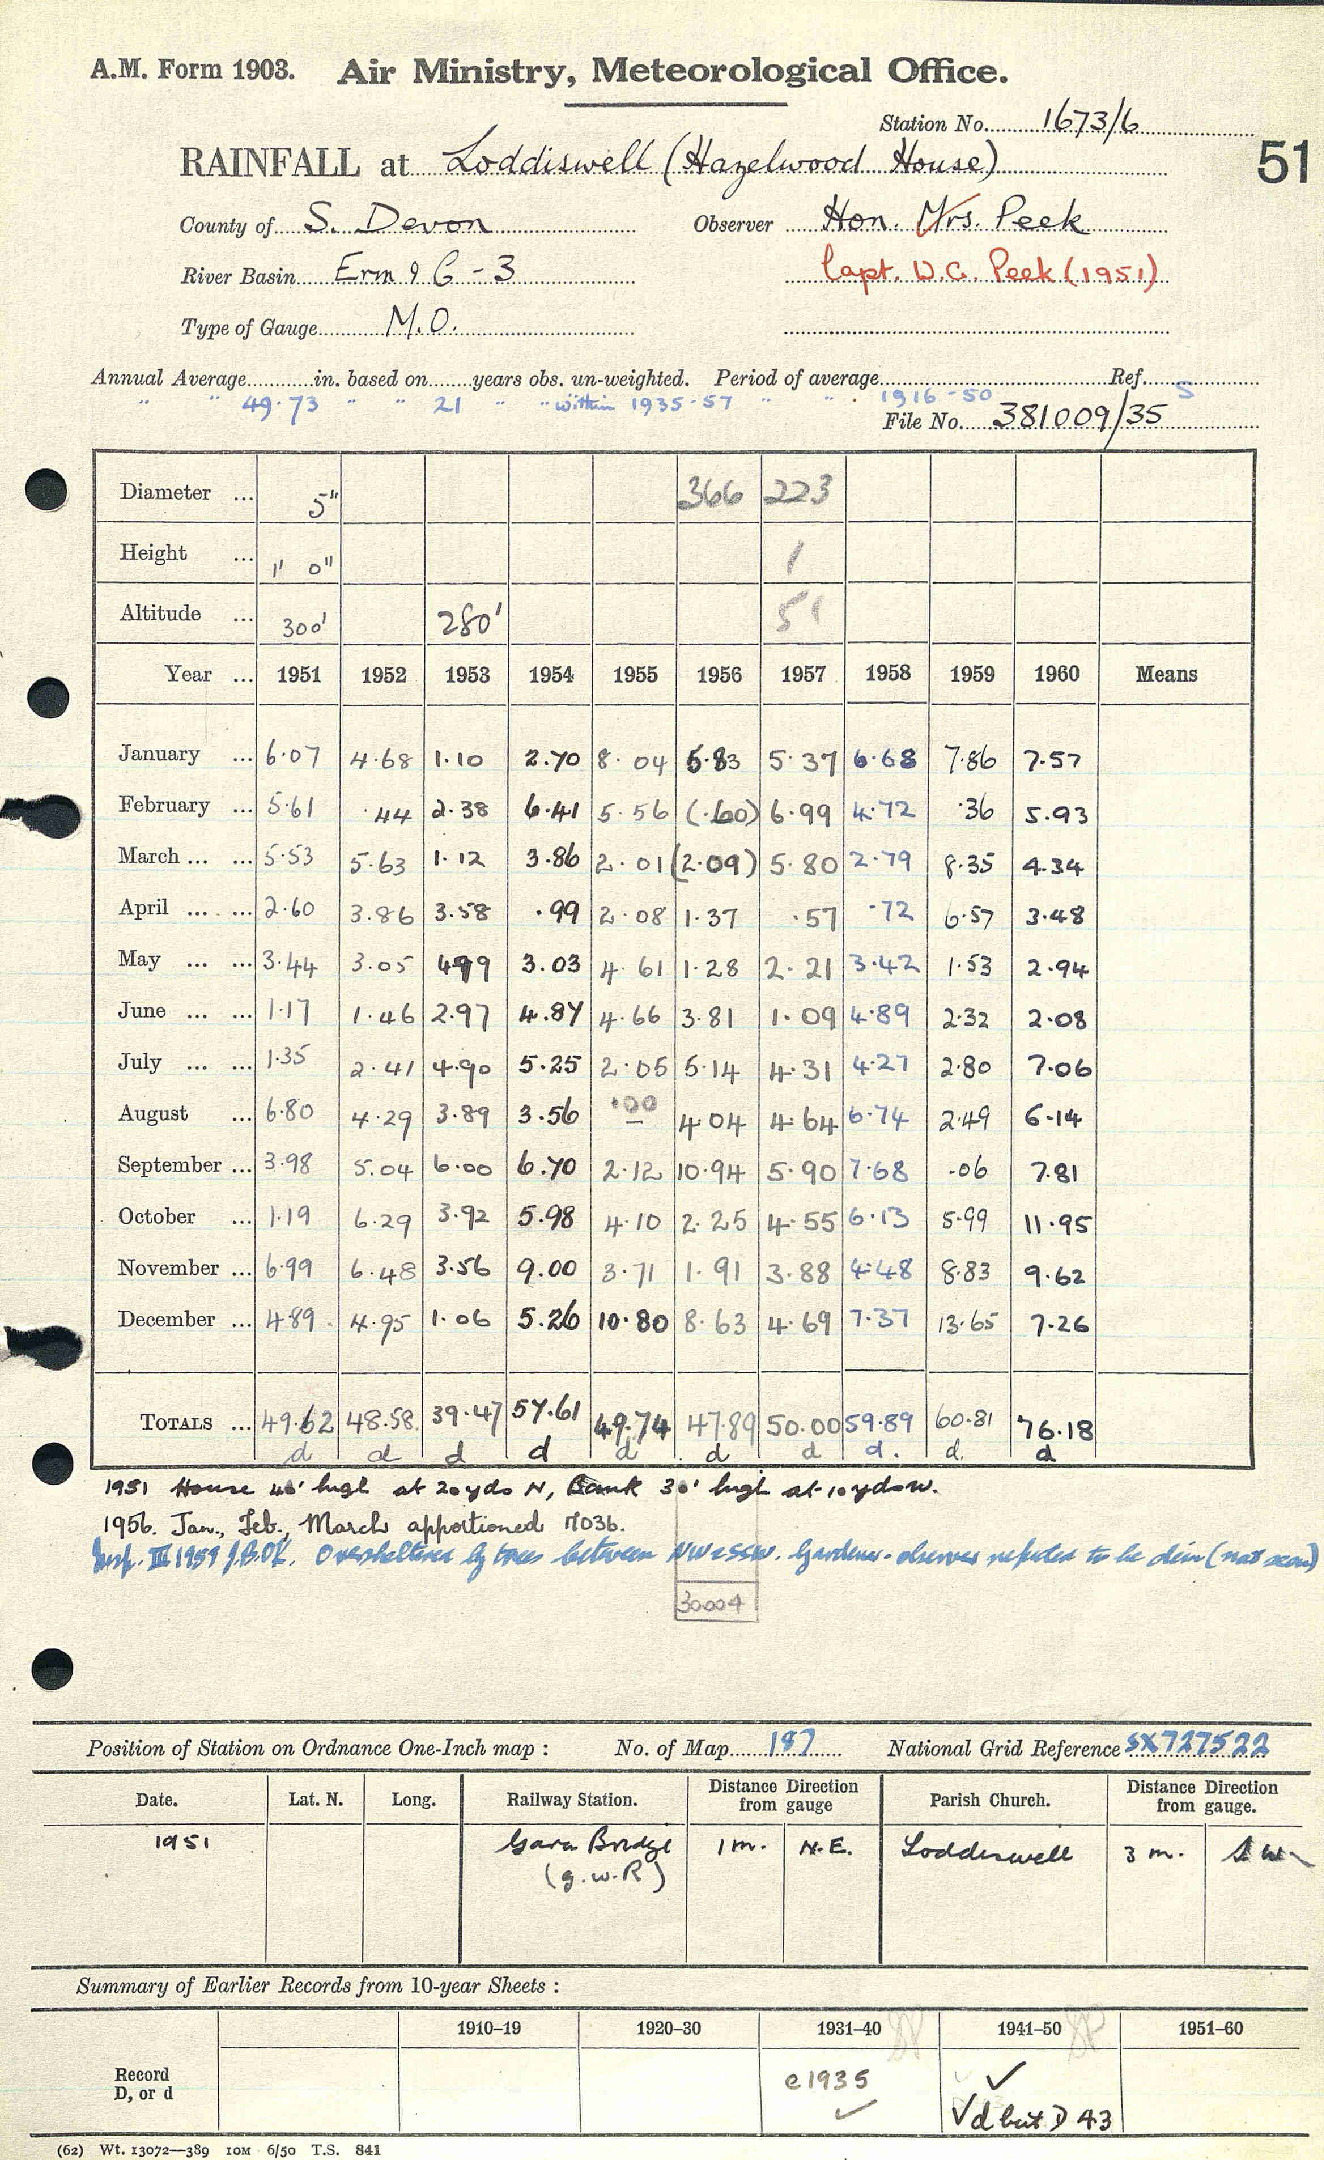 A.M. Form 1903. Air Ministry, Meteorological Office.
Station No. 1673/6
RAINFALL at Loddiswell (Hazelwood House)
51
County of S. Devon Observer Hon. Mrs. Peek
River Basin Erm & G - 3 Capt. W.G. Peek (1951)
Type of Gauge M.O.
Annual Average in. based on years obs. un-weighted. Period of average Ref. S
" " 49.73 " " 21 " " within 1935-57 " " 1916-50
File No. 381009/35
Diameter ... 5" 366 223
Height ... 1' 0" 1
Altitude ... 300' 280' 51
Year ... 1951 1952 1953 1954 1955 1956 1957 1958 1959 1960 Means
January ... 6.07 4.68 1.10 2.70 8.04 5.83 5.37 6.68 7.86 7.57
February ... 5.61 .44 2.38 6.41 5.56 (.60) 6.99 4.72 .36 5.93
March ... ... 5.53 5.63 1.12 3.86 2.01 (2.09) 5.80 2.79 8.35 4.34
April ... ... 2.60 3.86 3.58 .99 2.08 1.37 .57 .72 6.57 3.48
May ... ... 3.44 3.05 4.99 3.03 4.61 1.28 2.21 3.42 1.53 2.94
June ... ... 1.17 1.46 2.97 4.87 4.66 3.81 1.09 4.89 2.32 2.08
July ... ... 1.35 2.41 4.90 5.25 2.05 5.14 4.31 4.27 2.80 7.06
August ... 6.80 4.29 3.89 3.56 .00 4.04 4.64 6.74 2.49 6.14
September ... 3.98 5.04 6.00 6.70 2.12 10.94 5.90 7.68 .06 7.81
October ... 1.19 6.29 3.92 5.98 4.10 2.25 4.55 6.13 5.99 11.95
November ... 6.99 6.48 3.56 9.00 3.71 1.91 3.88 4.48 8.83 9.62
December ... 4.89 4.95 1.06 5.26 10.80 8.63 4.69 7.37 13.65 7.26
TOTALS ... 49.62 48.58 39.47 57.61 49.74 47.89 50.00 59.89 60.81 76.18
d d d d d d d d. d. d
1951 House 40' high at 20 yds N, Bank 30' high at 10 yds W.
1956. Jan., Feb., March apportioned M036.
Insp. III 1959 J.B.O.K. Oversheltered by trees between NW & SSW. Gardener-observer reputed to be (not seen)
30004
Position of Station on Ordnance One-Inch map : No. of Map 187 National Grid Reference SX727522
Date. Lat. N. Long. Railway Station. Distance Direction from gauge Parish Church. Distance Direction from gauge.
1951 Gara Bridge 1 m. N.E. Loddiswell 3 m. S W
(G.W.R)
Summary of Earlier Records from 10-year Sheets :
1910–19 1920–30 1931–40 1941–50 1951–60
Record
D, or d
e1935
✓ ✓
√ d but D 43
(62) Wt. 13072—389 10M 6/50 T.S. 841